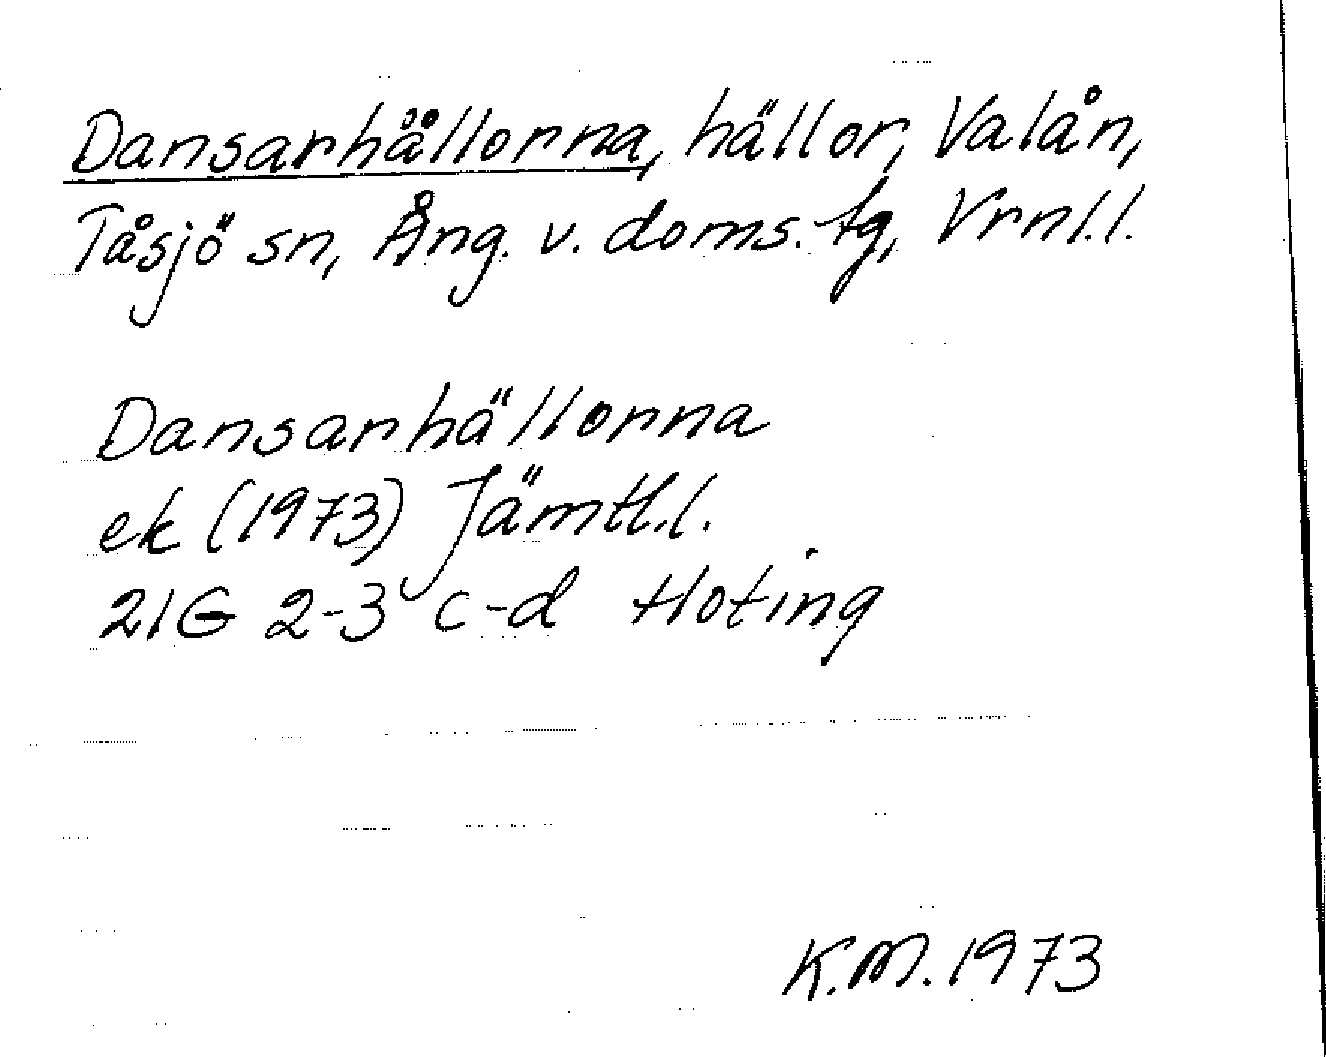 Dansarhällorna, hällor, Valån,
Tåsjö sn, Ång. v. doms. tg, Vrnl.l.
Dansarhällorna
ek (1973) Jämtl.l.
21G 2-3 c-d Hoting
K.M. 1973